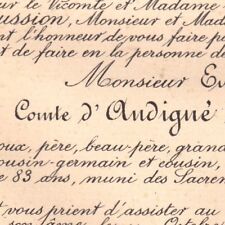 ur le Vicomte et Madame
ussion, Monsieur et Mad
nt l'honneur de vous faire p
t de faire en la personne d
Monsieur E
Comte d'Andigné
oux, père, beau-père, grand
ousin-germain et cousin,
e 83 ans, muni des Sacre
t vous prient d'assister au
son âme, Octob